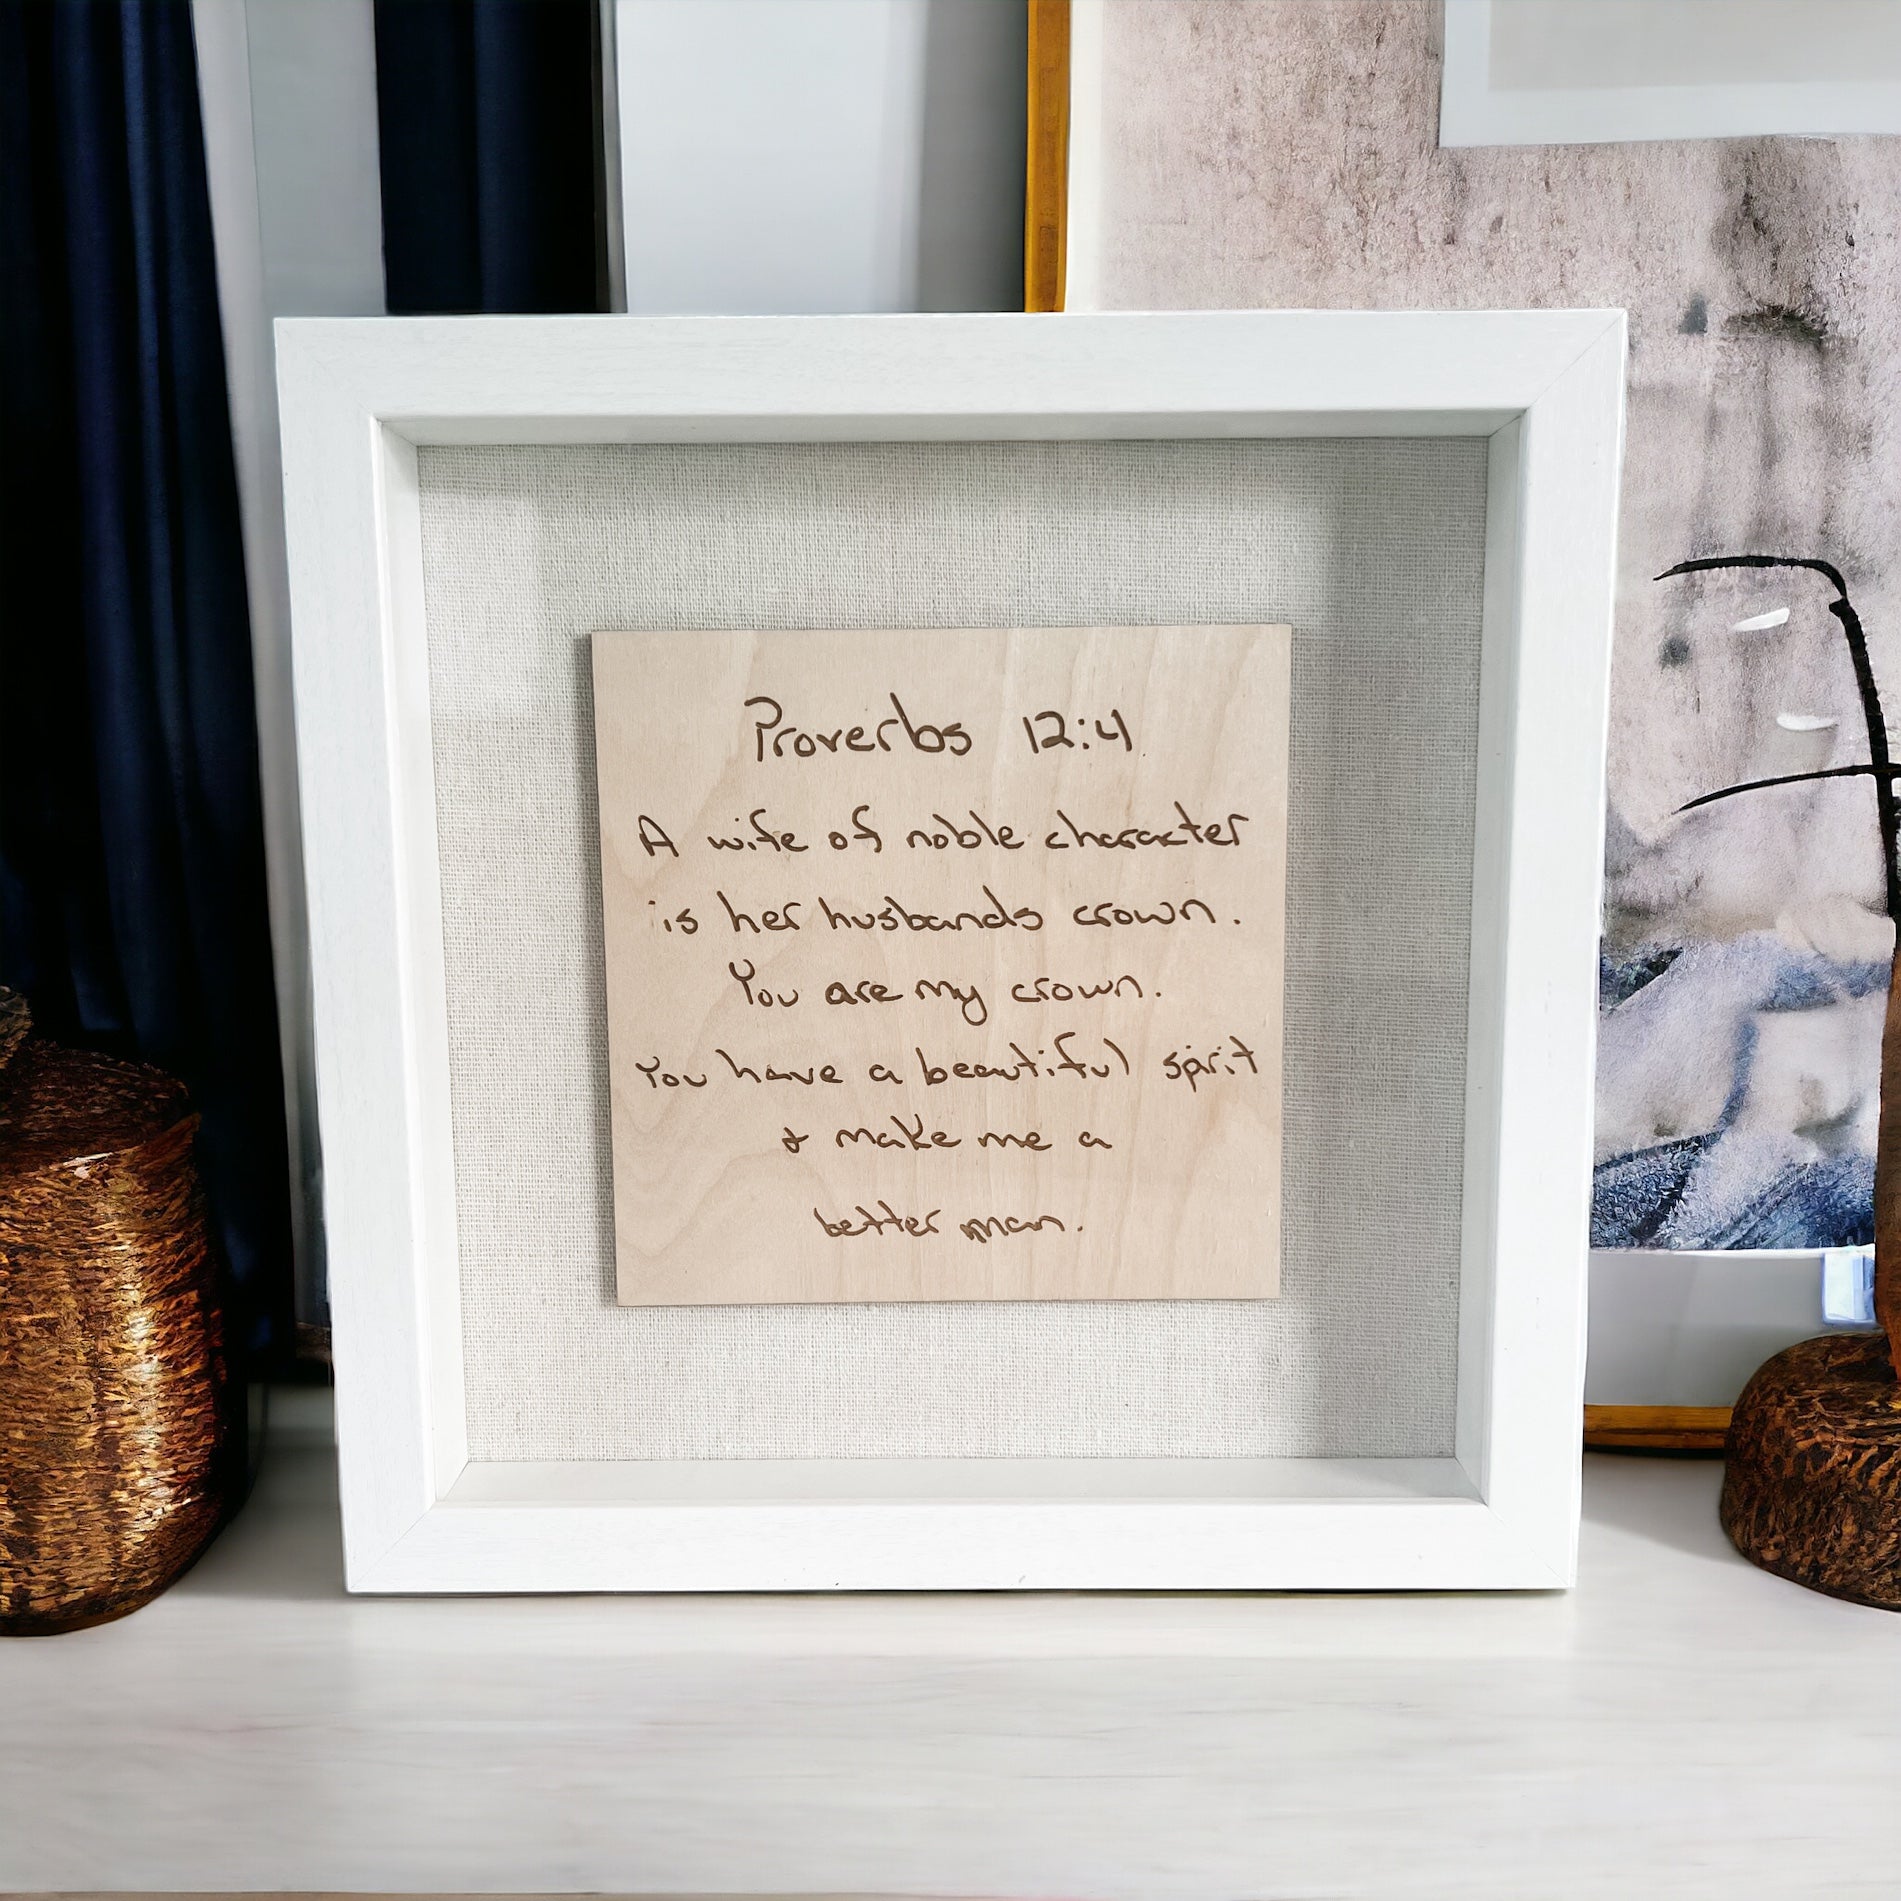 Proverbs 12:4
A wife of noble character
is her husbands crown.
You are my crown.
You have a beautiful spirit
& make me a
better man.